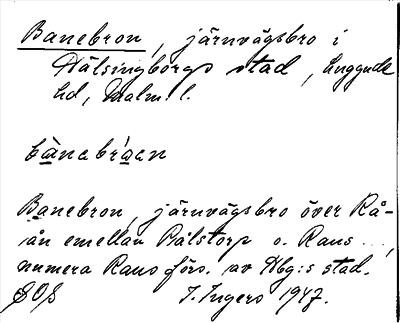 Banebron, järnvägsbro i
Hälsingborgs stad, Luggude
hd, Malm. l.
bànebrǻen
Banebron, järnvägsbro över Rå-
ån emellan Pålstorp o. Raus ...,
numera Raus förs. av Hbg:s stad.
SOÅ I. Ingers 1947.